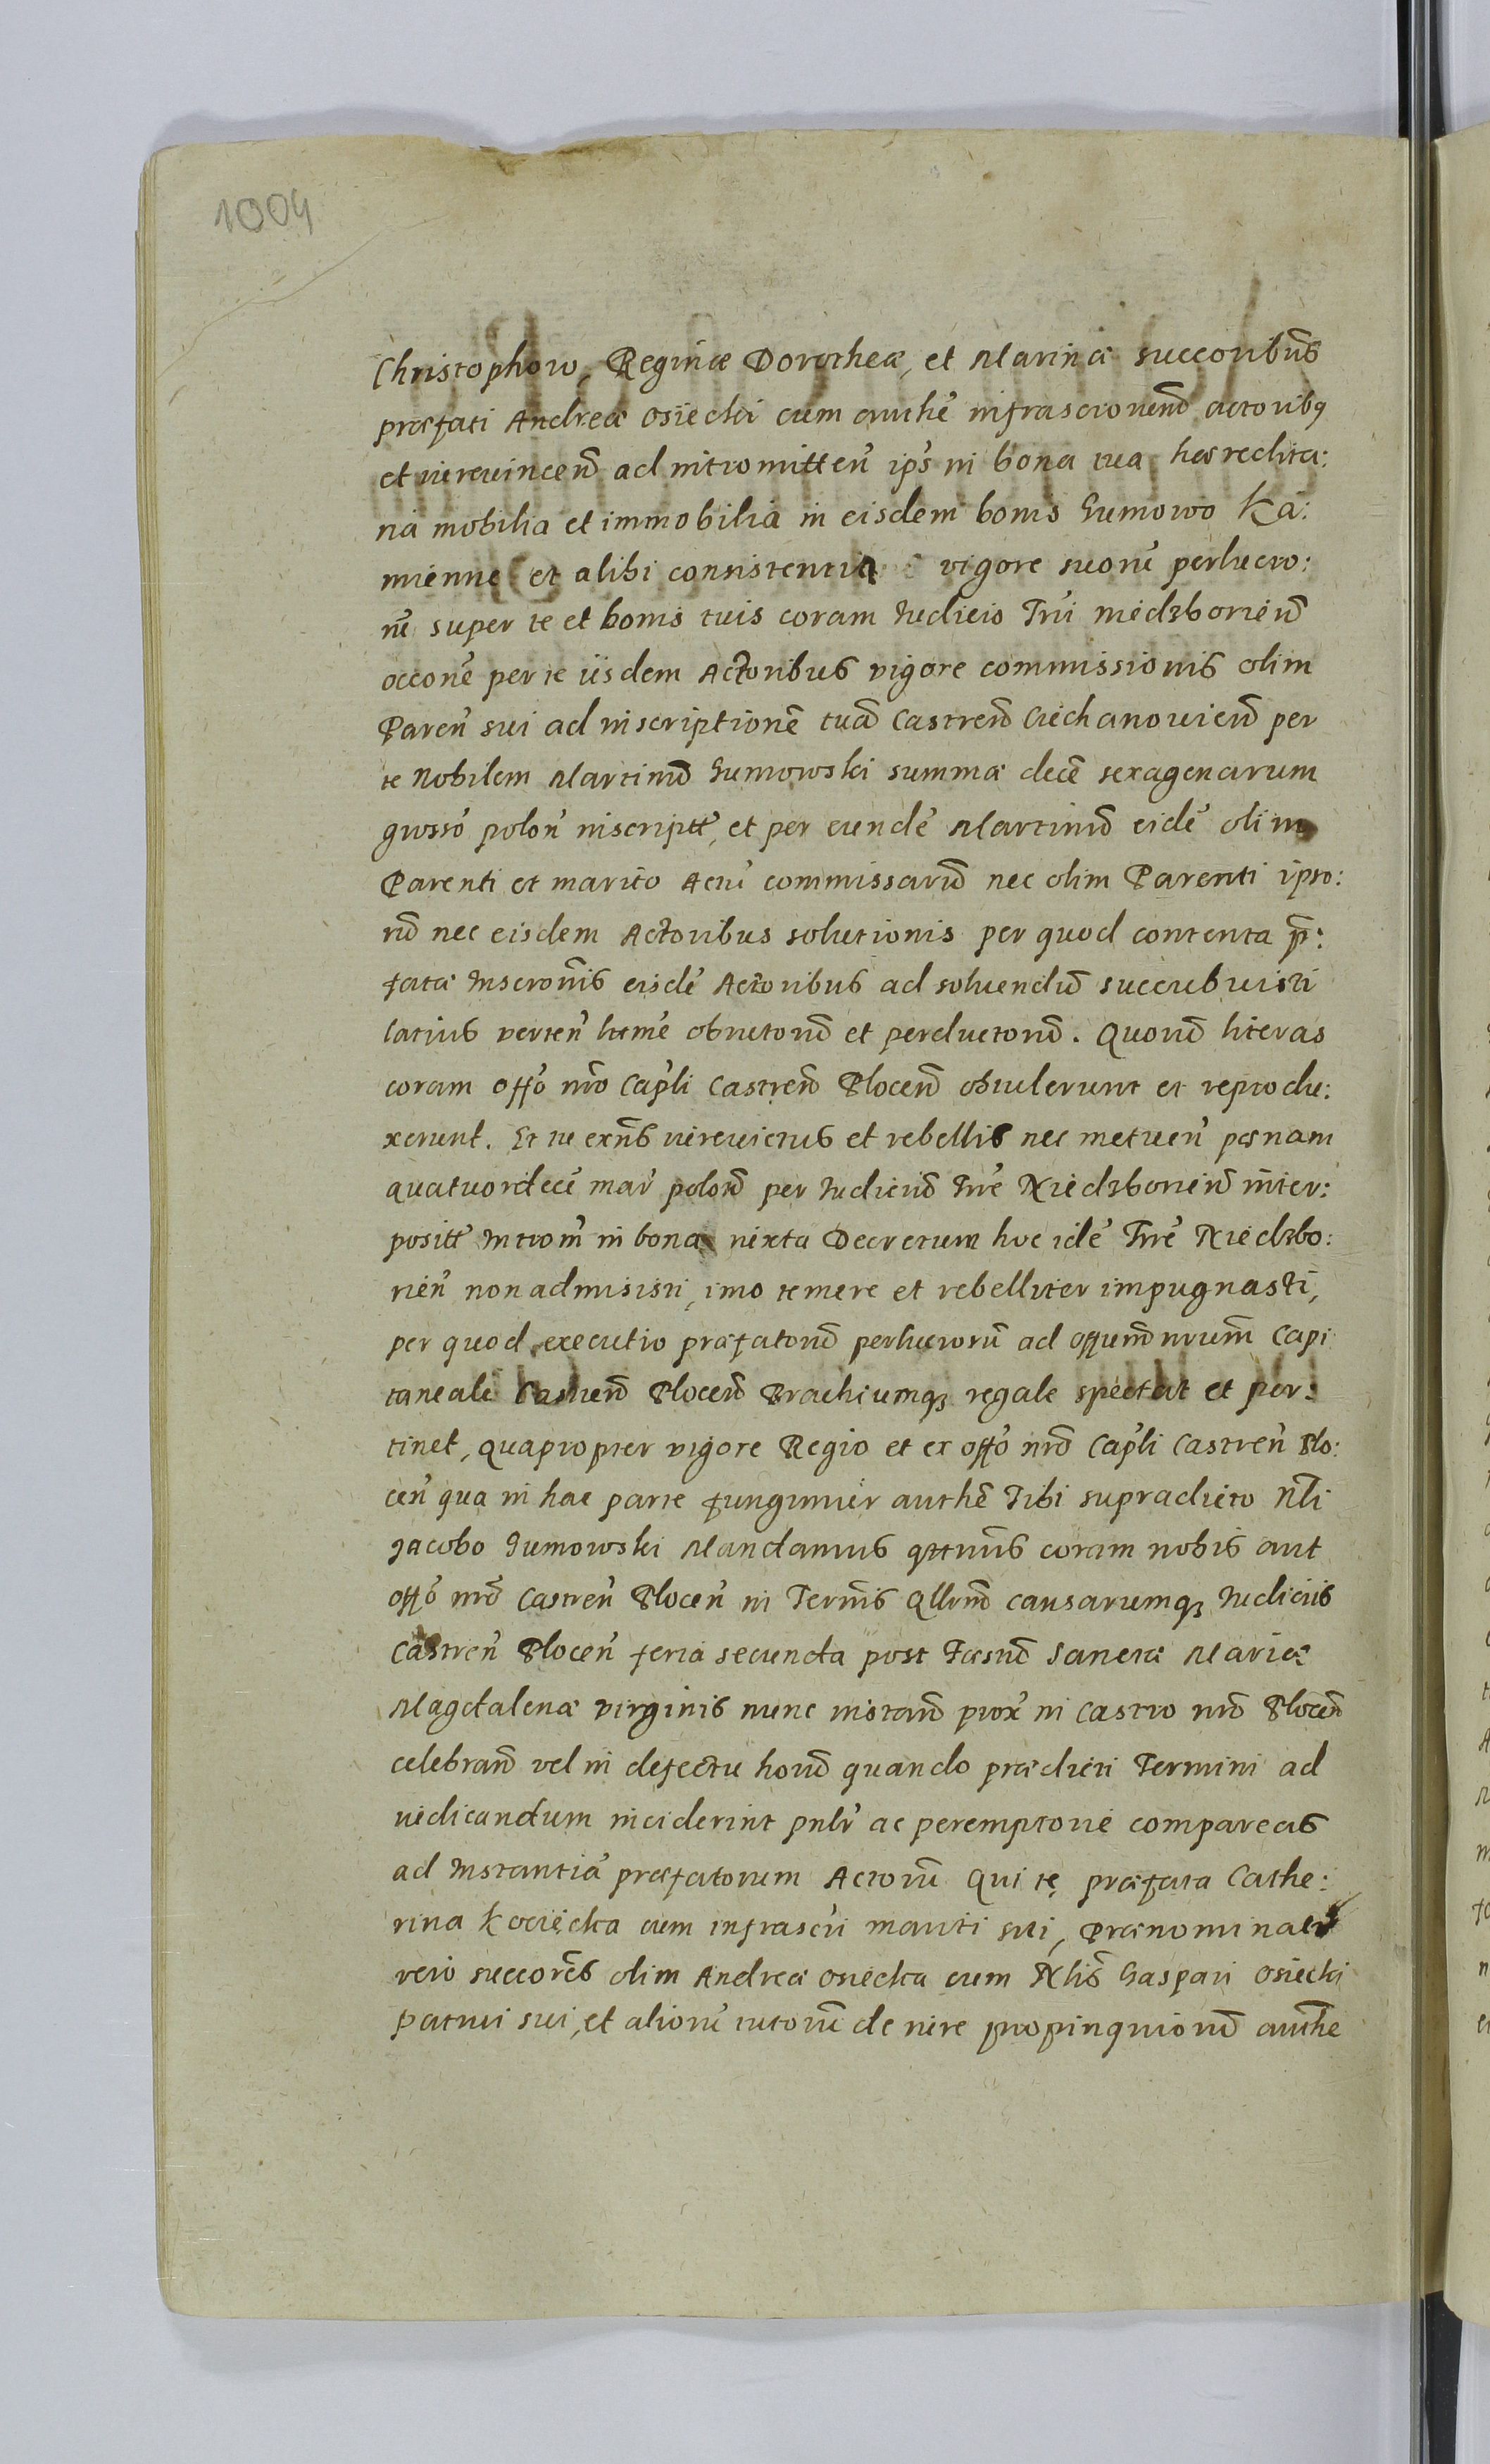 1004
Christophoro, Reginæ Dorotheæ, et Marinæ succoribus̃
præfati Andreæ Osiecki cum authẽ infrascronum̃ actoribꝫ
et iurevincen̄ ad intromitten̄ ips̄ in bona tua hæredita:
ria mobilia et immobilia in eisdem bonis Humowo Ka:
mienne et alibi consistentia vigore suorũ perlucro:
rũ super te et bonis tuis coram Iudicio Trñi niedzborien̄
occonẽ per te iisdem Actoribus vigore commissionis olim
Paren̄ sui ad inscriptionẽ tuã Castren̄ Ciechanovien̄ per
te Nobilem Martinũ Humowski summæ decẽ sexagenarum
grosso᷑ polon̄ inscriptt̃, et per eundẽ Martinũ eidẽ olim
Parenti et marito Acrũ commissarũ nec olim Parenti ipso:
rũ nec eisdem Actoribus solutionis per quod contenta p̄:
fatæ Inscronĩs eisdẽ Actoribus ad solvendũ succubuisti
latius perten̄ obtentorũ et perductorũ. Quorũ literas
coram Offõ nrõ Capli Castren̄ Plocen̄ obtulerunt et reprodu:
xerunt. Et tu exñs iurevictus et rebellis nec metuen̄ pœnam
quatuordecẽ mar̄ polon̄ per Iudiciũ Trrẽ Niedzborien̄ inter:
positt̃ Introm̄ in bona iuxta Decretum hoc idẽ Trrẽ Niedzbo:
rien̄ non admisisti, imo temere et rebelliter impugnasti,
per quod executio præfatorũ perlucrorũ ad offium̃ nrum̃ Capi
taneale Castren̄ Plocen̄ Brachiumqꝫ regale spectat et per:
tinet, quapropter vigore Regio et ex offõ nrõ Capli Castren̄ Plo:
cen̄ qua in hac parte fungimur authẽ Tibi supradicto Nli
Jacobo Humowski Mandamus qttnũs coram nobis aut
offõ nrõ Castren̄ Plocen̄ in Termĩs Qllrum̃ causarumqꝫ Iudiciis
Castren̄ Plocen̄ feria secunda post Fæstũ Sanctæ Mariæ
Magdalenæ virginis nunc instan̄ prox̃ in Castro nrõ Plocen̄
celebran̄ vel in defectu horũ quando prædicti Termini ad
iudicandum inciderint pnlr̃ ac peremptorie compareas
ad Instantiã præfatorum Actorũ Qui te præfata Cathe:
rina Kociecka cum infrascri mariti sui, Prænominati
vero succorẽs olim Andreæ Osiecka cum Nlis̃ Gaspari Osiecki
Patrui sui, et aliorũ tutorũ de iure propinquiorũ authẽ